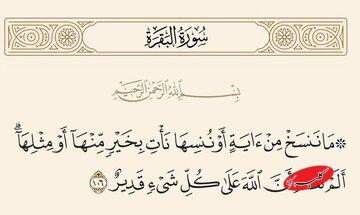 سُورَةُ البَقَرَةِ
بِسْمِ اللَّهِ الرَّحْمَٰنِ الرَّحِيمِ
۞ مَا نَنسَخْ مِنْ ءَايَةٍ أَوْ نُنسِهَا نَأْتِ بِخَيْرٍ مِّنْهَا أَوْ مِثْلِهَآ ۗ
أَلَمْ أَنَّ اللَّهَ عَلَىٰ كُلِّ شَىْءٍ قَدِيرٌ ١٠٦